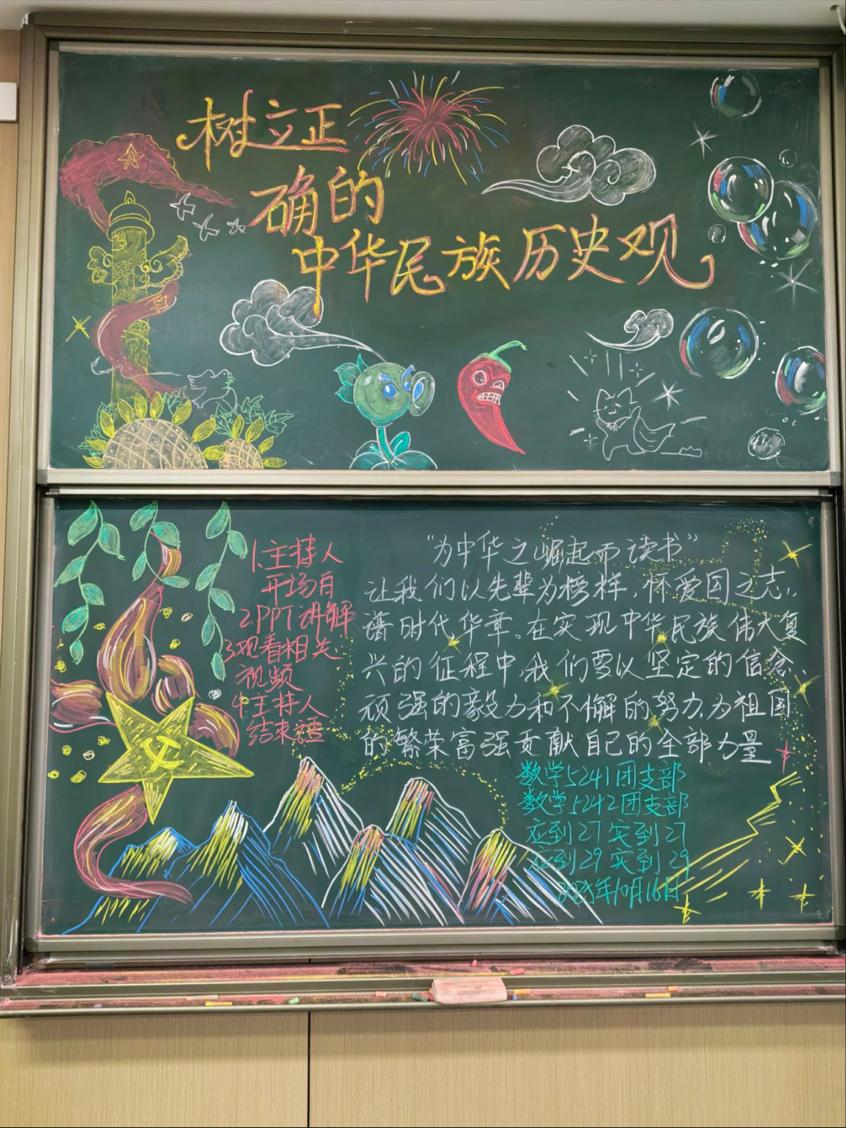 树立正
确的
中华民族历史观
1.主持人
开场白
2.PPT讲解
3.观看相关
视频
4.主持人
结束語
“为中华之崛起而读书”
让我们以先辈为榜样，怀爱国之志，
谱时代华章。在实现中华民族伟大复
兴的征程中，我们要以坚定的信念、
顽强的毅力和不懈的努力，为祖国
的繁荣富强贡献自己的全部力量
数学5241团支部
数学5242团支部
应到27 实到27
应到29 实到29
2025年10月16日